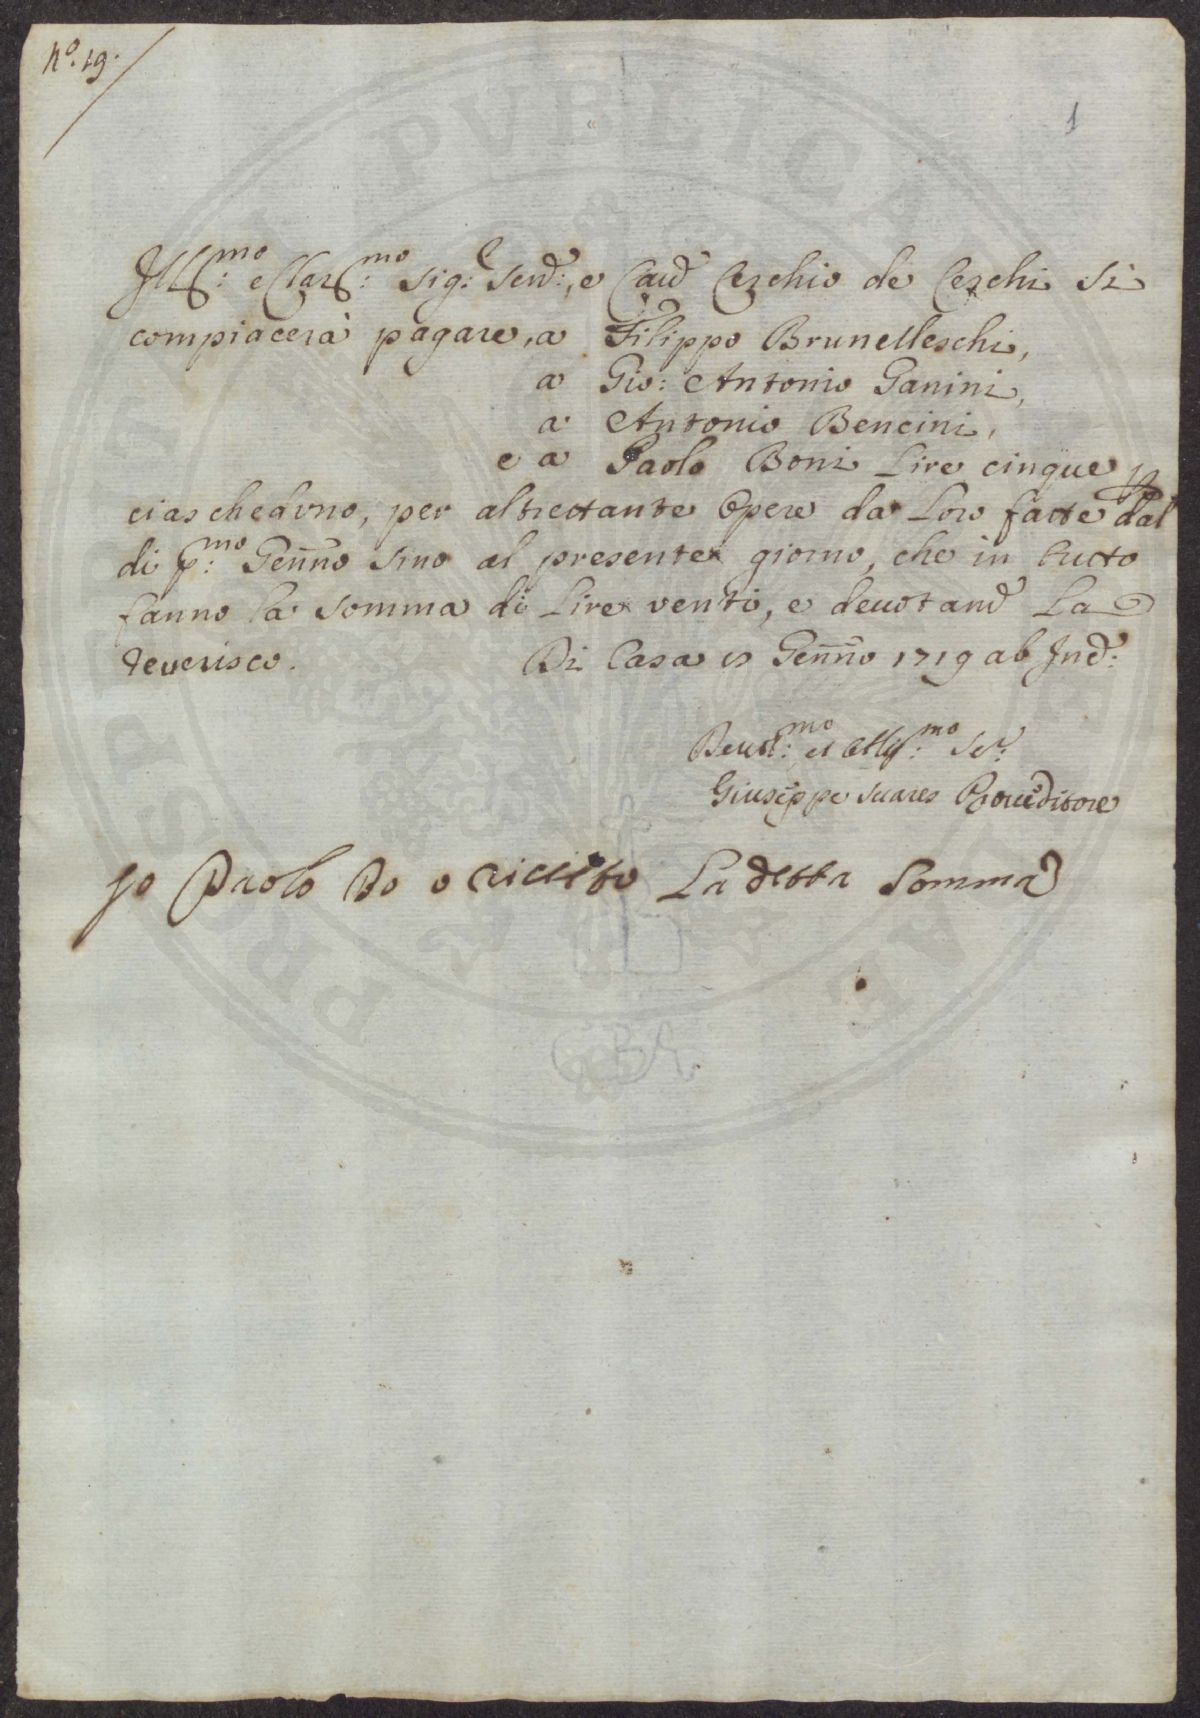 N.º 19.
1
Ill:mo e Clar:mo Sig:e Send:, e Caud Cerchio de Cerchi si
compiacerà pagare, a Filippo Brunelleschi,
a Gio: Antonio Ganini,
a Antonio Bencini,
e a Paolo Boni Lire cinque p
ciaschedvno, per altrettante Opere da Loro fatte dal
di p:mo Genno sino al presente giorno, che in tutto
fanno la somma di Lire venti, e deuot and La
reuerisco. Di Casa Genno 1719 ab Ind:
Deuot:mo et Obblig:mo Ser:
Giuseppe Suares Proueditore
Jo Paolo Bo o riceuto La detta Somma